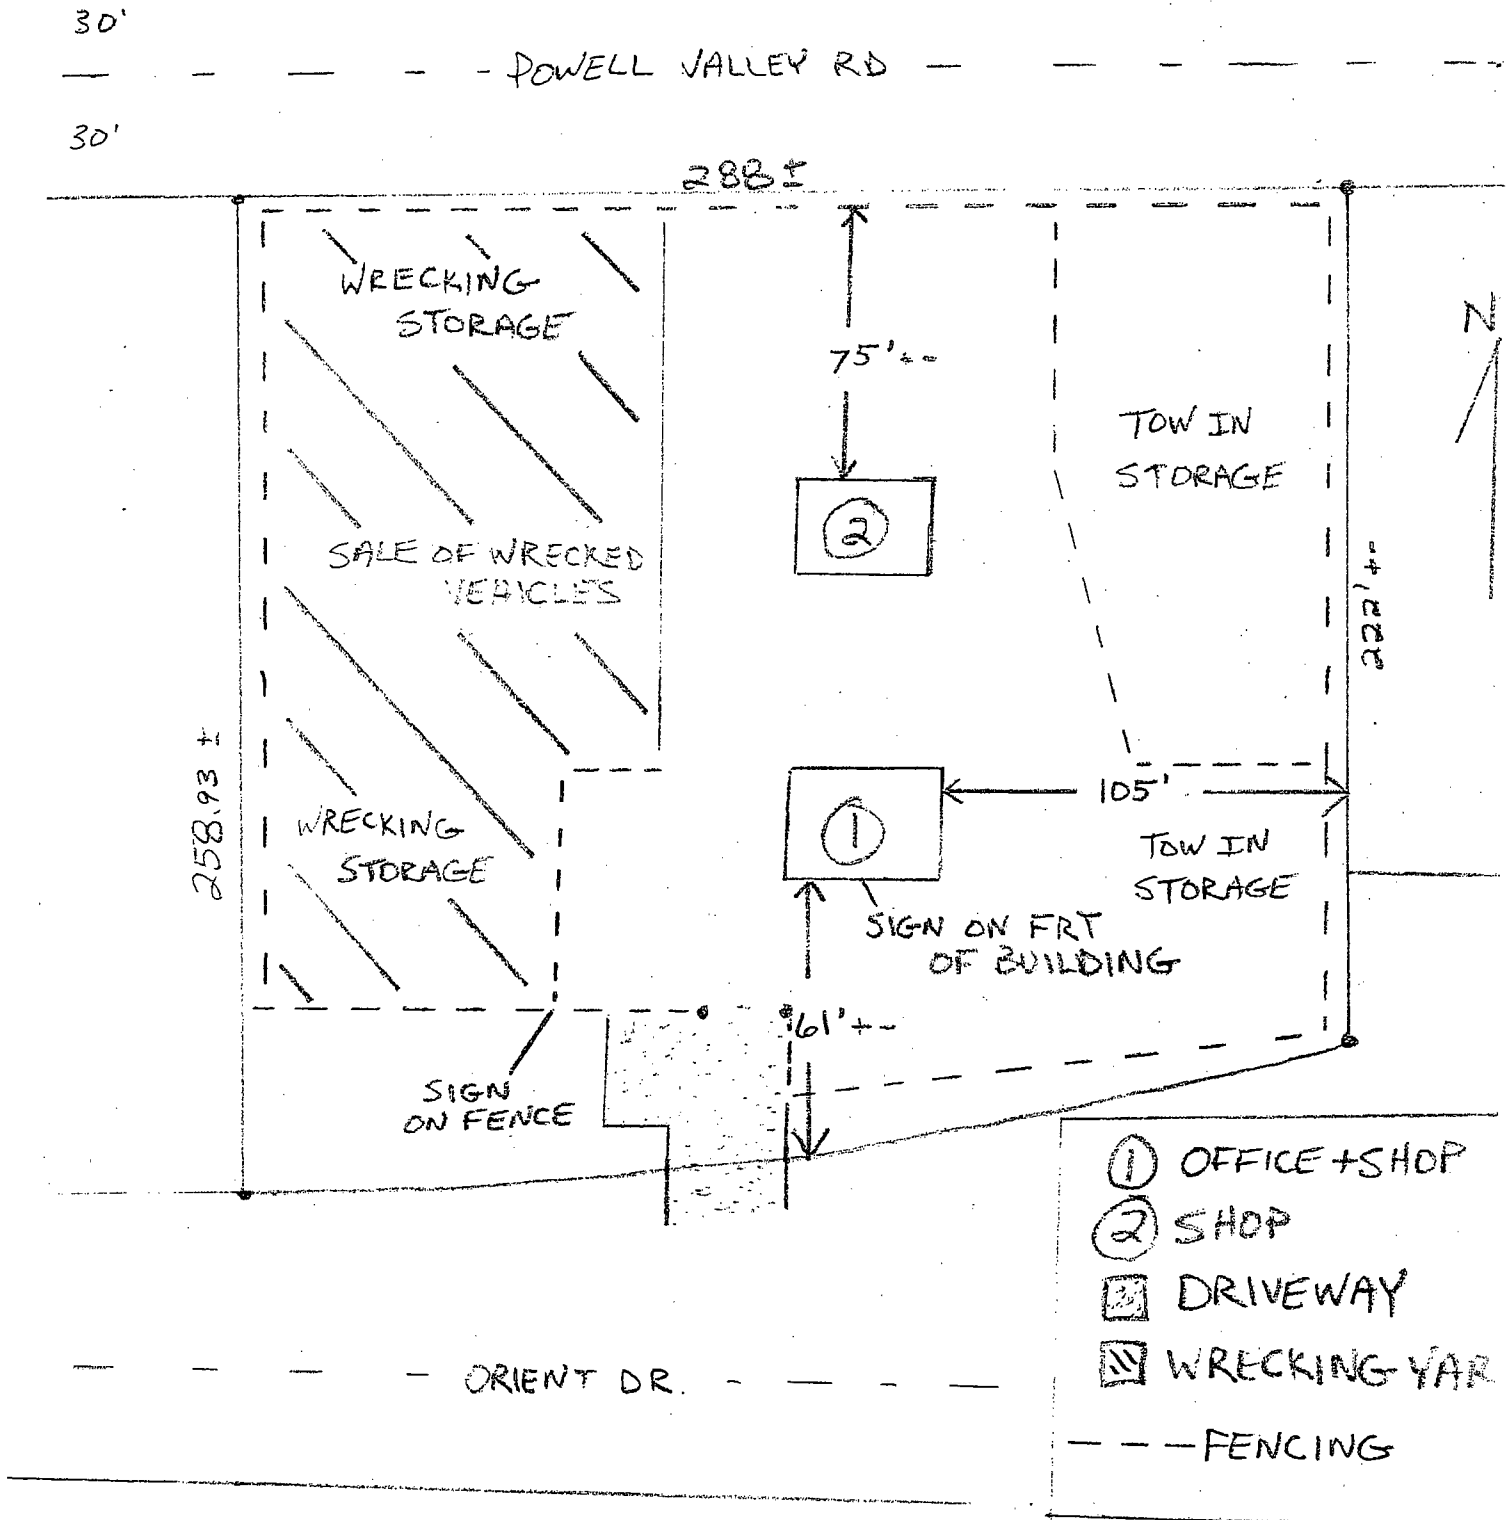 30'
POWELL VALLEY RD
30'
288 ±
WRECKING
STORAGE
75' +-
N
TOW IN
STORAGE
2
SALE OF WRECKED
VEHICLES
222' +-
258.93 ±
105'
1
WRECKING
STORAGE
TOW IN
STORAGE
SIGN ON FRT
OF BUILDING
61' +-
SIGN
ON FENCE
1 OFFICE + SHOP
2 SHOP
DRIVEWAY
WRECKING YAR
ORIENT DR.
FENCING